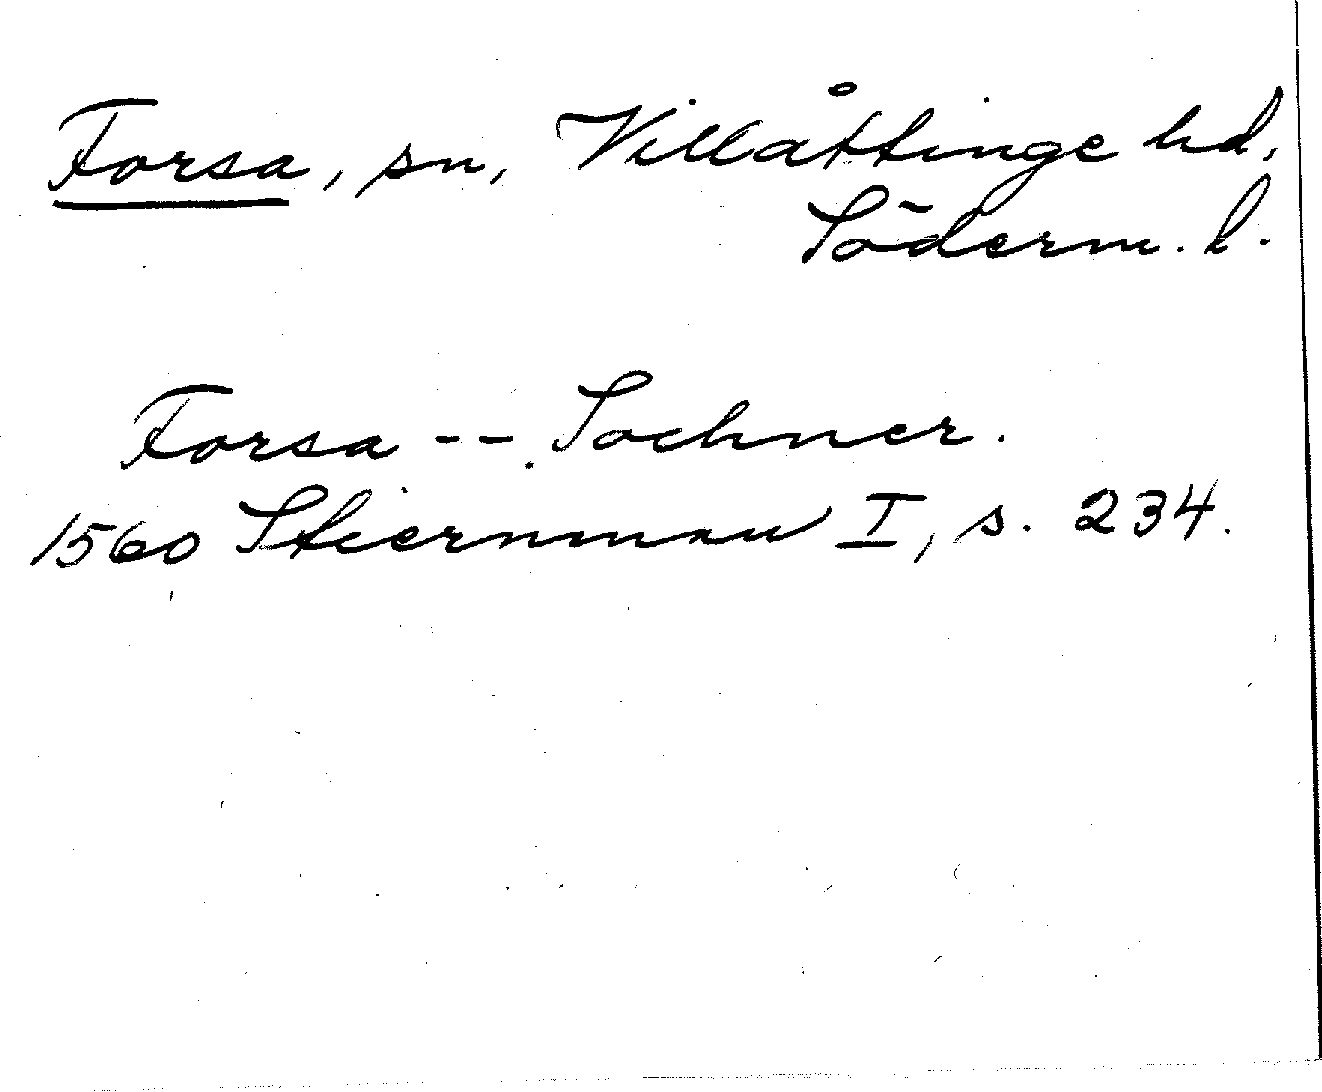 Forsa, sn, Villåttinge hd,
Söderm. l.
Forsa -- Sochner.
1560 Stiernman I, s. 234.